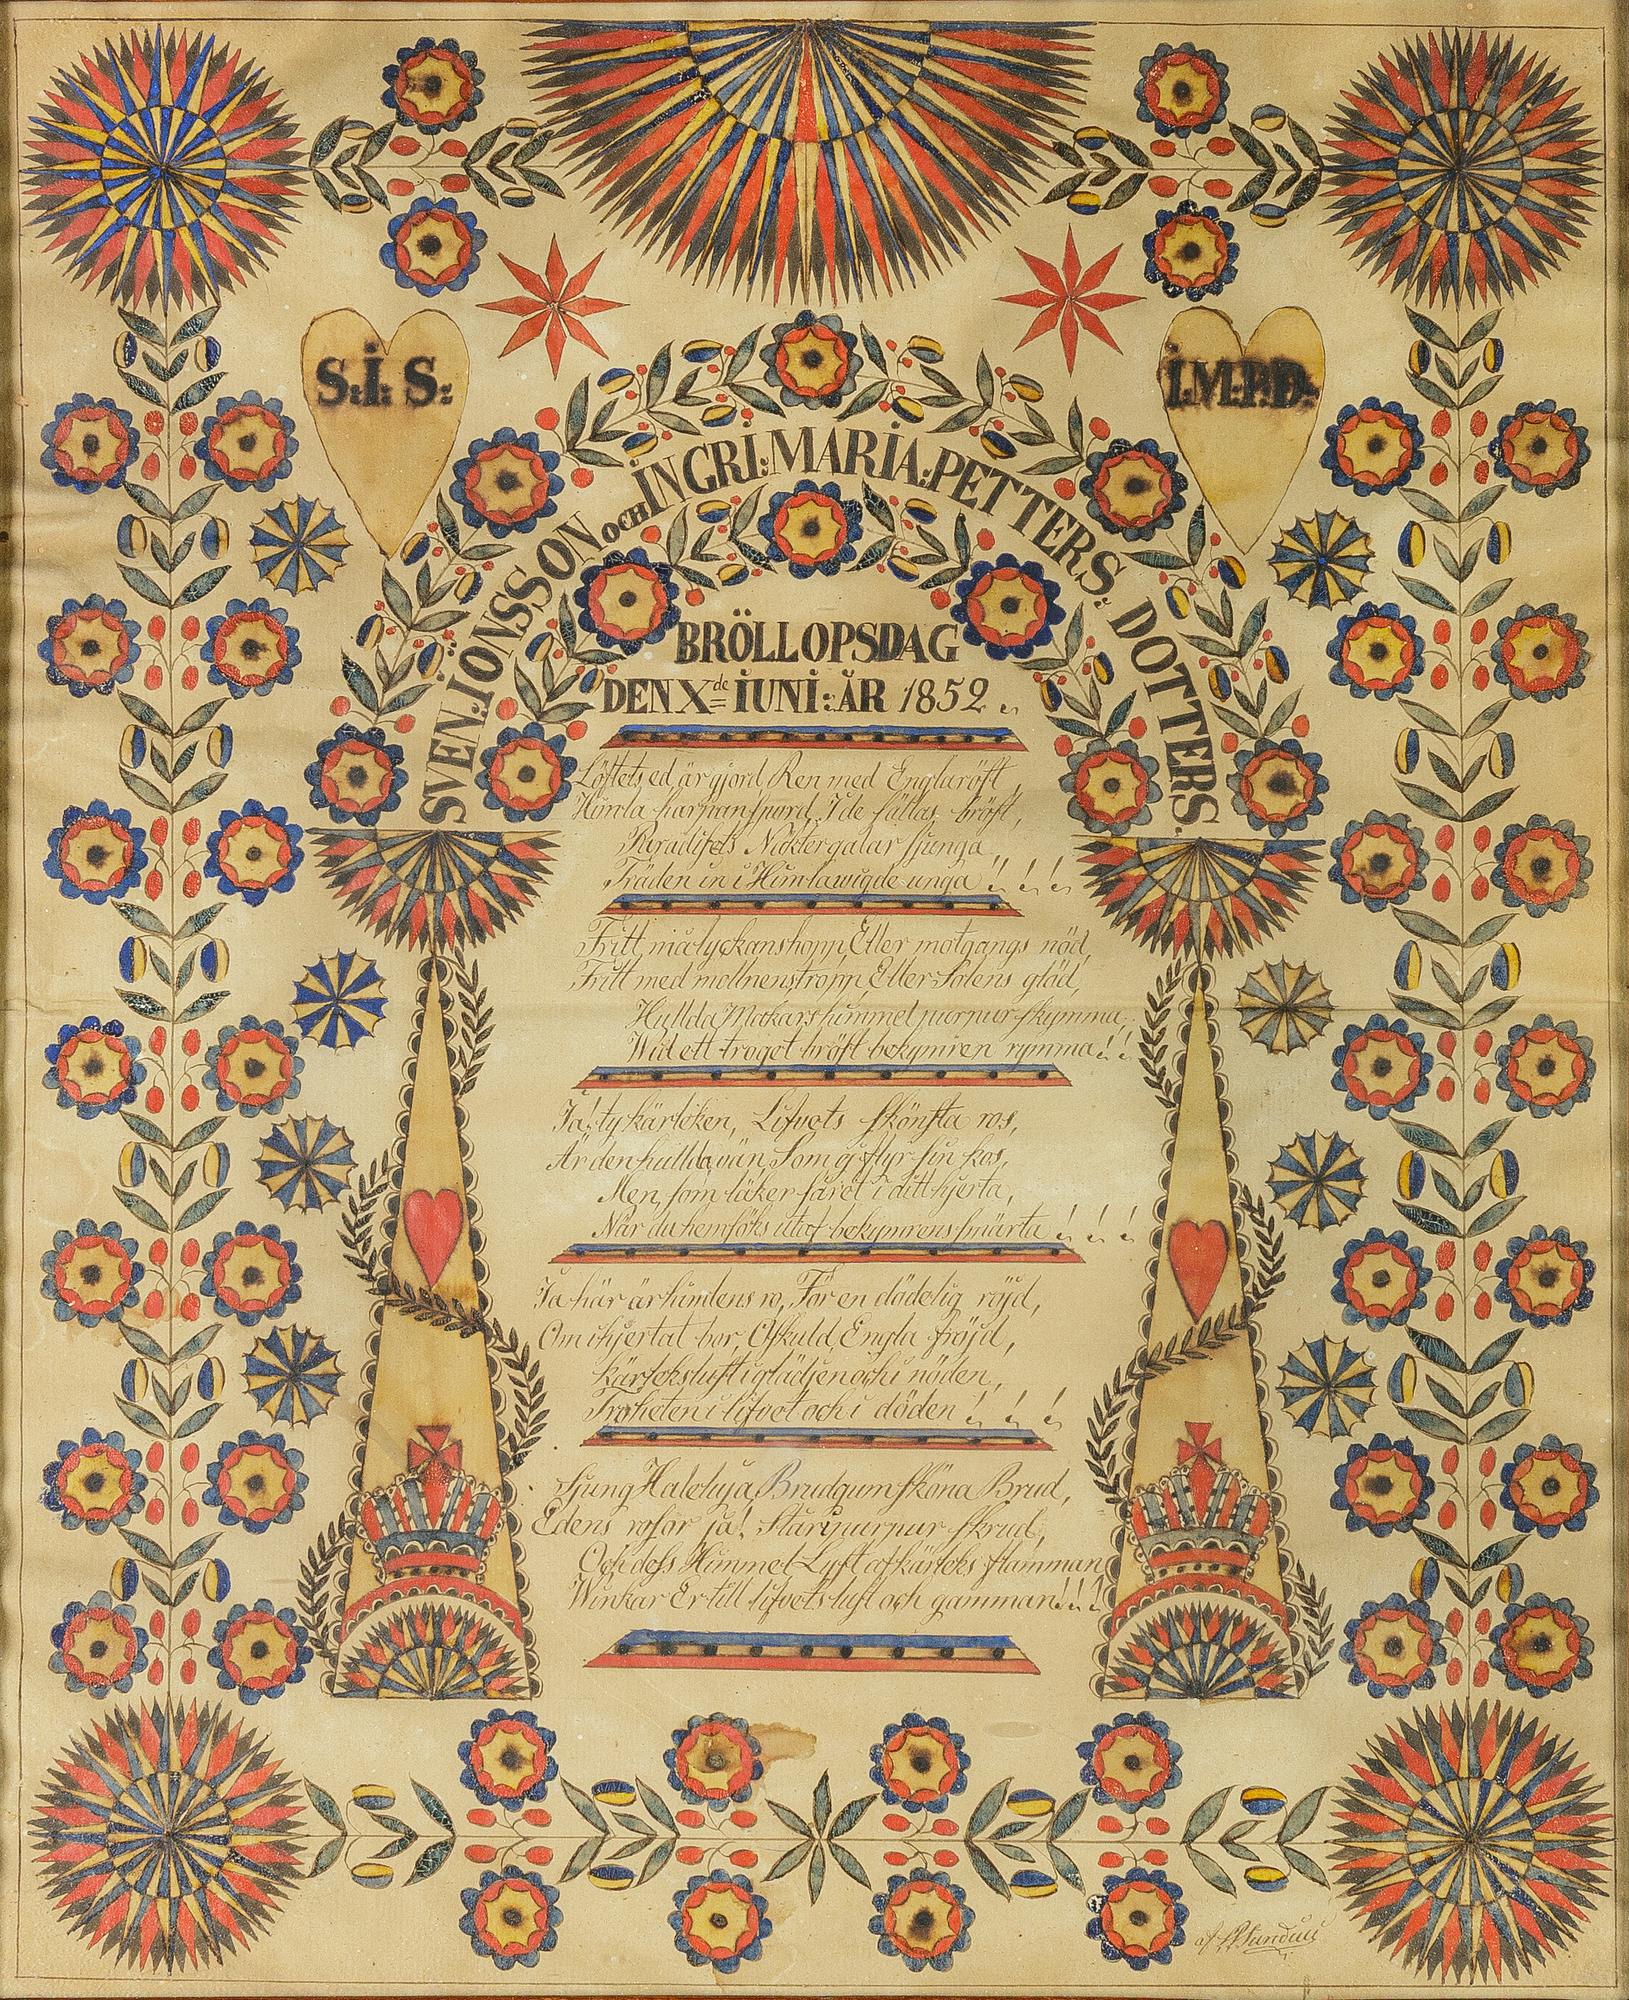 S: İ: S:
İ: M: P: D:
SVEN: İONSSON OCH İNGRI: MARİA: PETTERS: DOTTERS.
BRÖLLOPSDAG
DEN X de İUNİ: ÅR 1852
Löftets ed är gjord Ren med Englaröst,
Himla harpan spord, I de sällas bröst,
Paradisets Näktergalar sjunga,
Träden in i Himla wigde unga! ! ! !
Fritt må lyckans hopp, Eller motgångs nöd,
Fritt med molnens tropp, Eller Solens glöd,
Hullda Makars himmel purpur skymma
Wid ett troget bröst bekymren rymma! !
Ja! ty kärleken, Lifvets skönsta ros,
Är den hullda vän, Som ej flyr sin kos,
Men, som läker såret i ditt hjerta,
När du hemsöks utaf bekymrens smärta ! ! !
Ja här är himlens ro, För en dödelig röjd,
Om i hjertat bor, Oskuld, Engla fröjd,
Kärlekslust i glädjen och i nöden,
Troheten i lifvet och i döden ! ! !
Sjung Haleluja, Brudgum sköna Brud,
Edens rosor ja! Står i purpur skrud,
Och dess Himmel Lyft af kärleks flamman
Winkar Er till lifvets lust och gamman! ! !
af